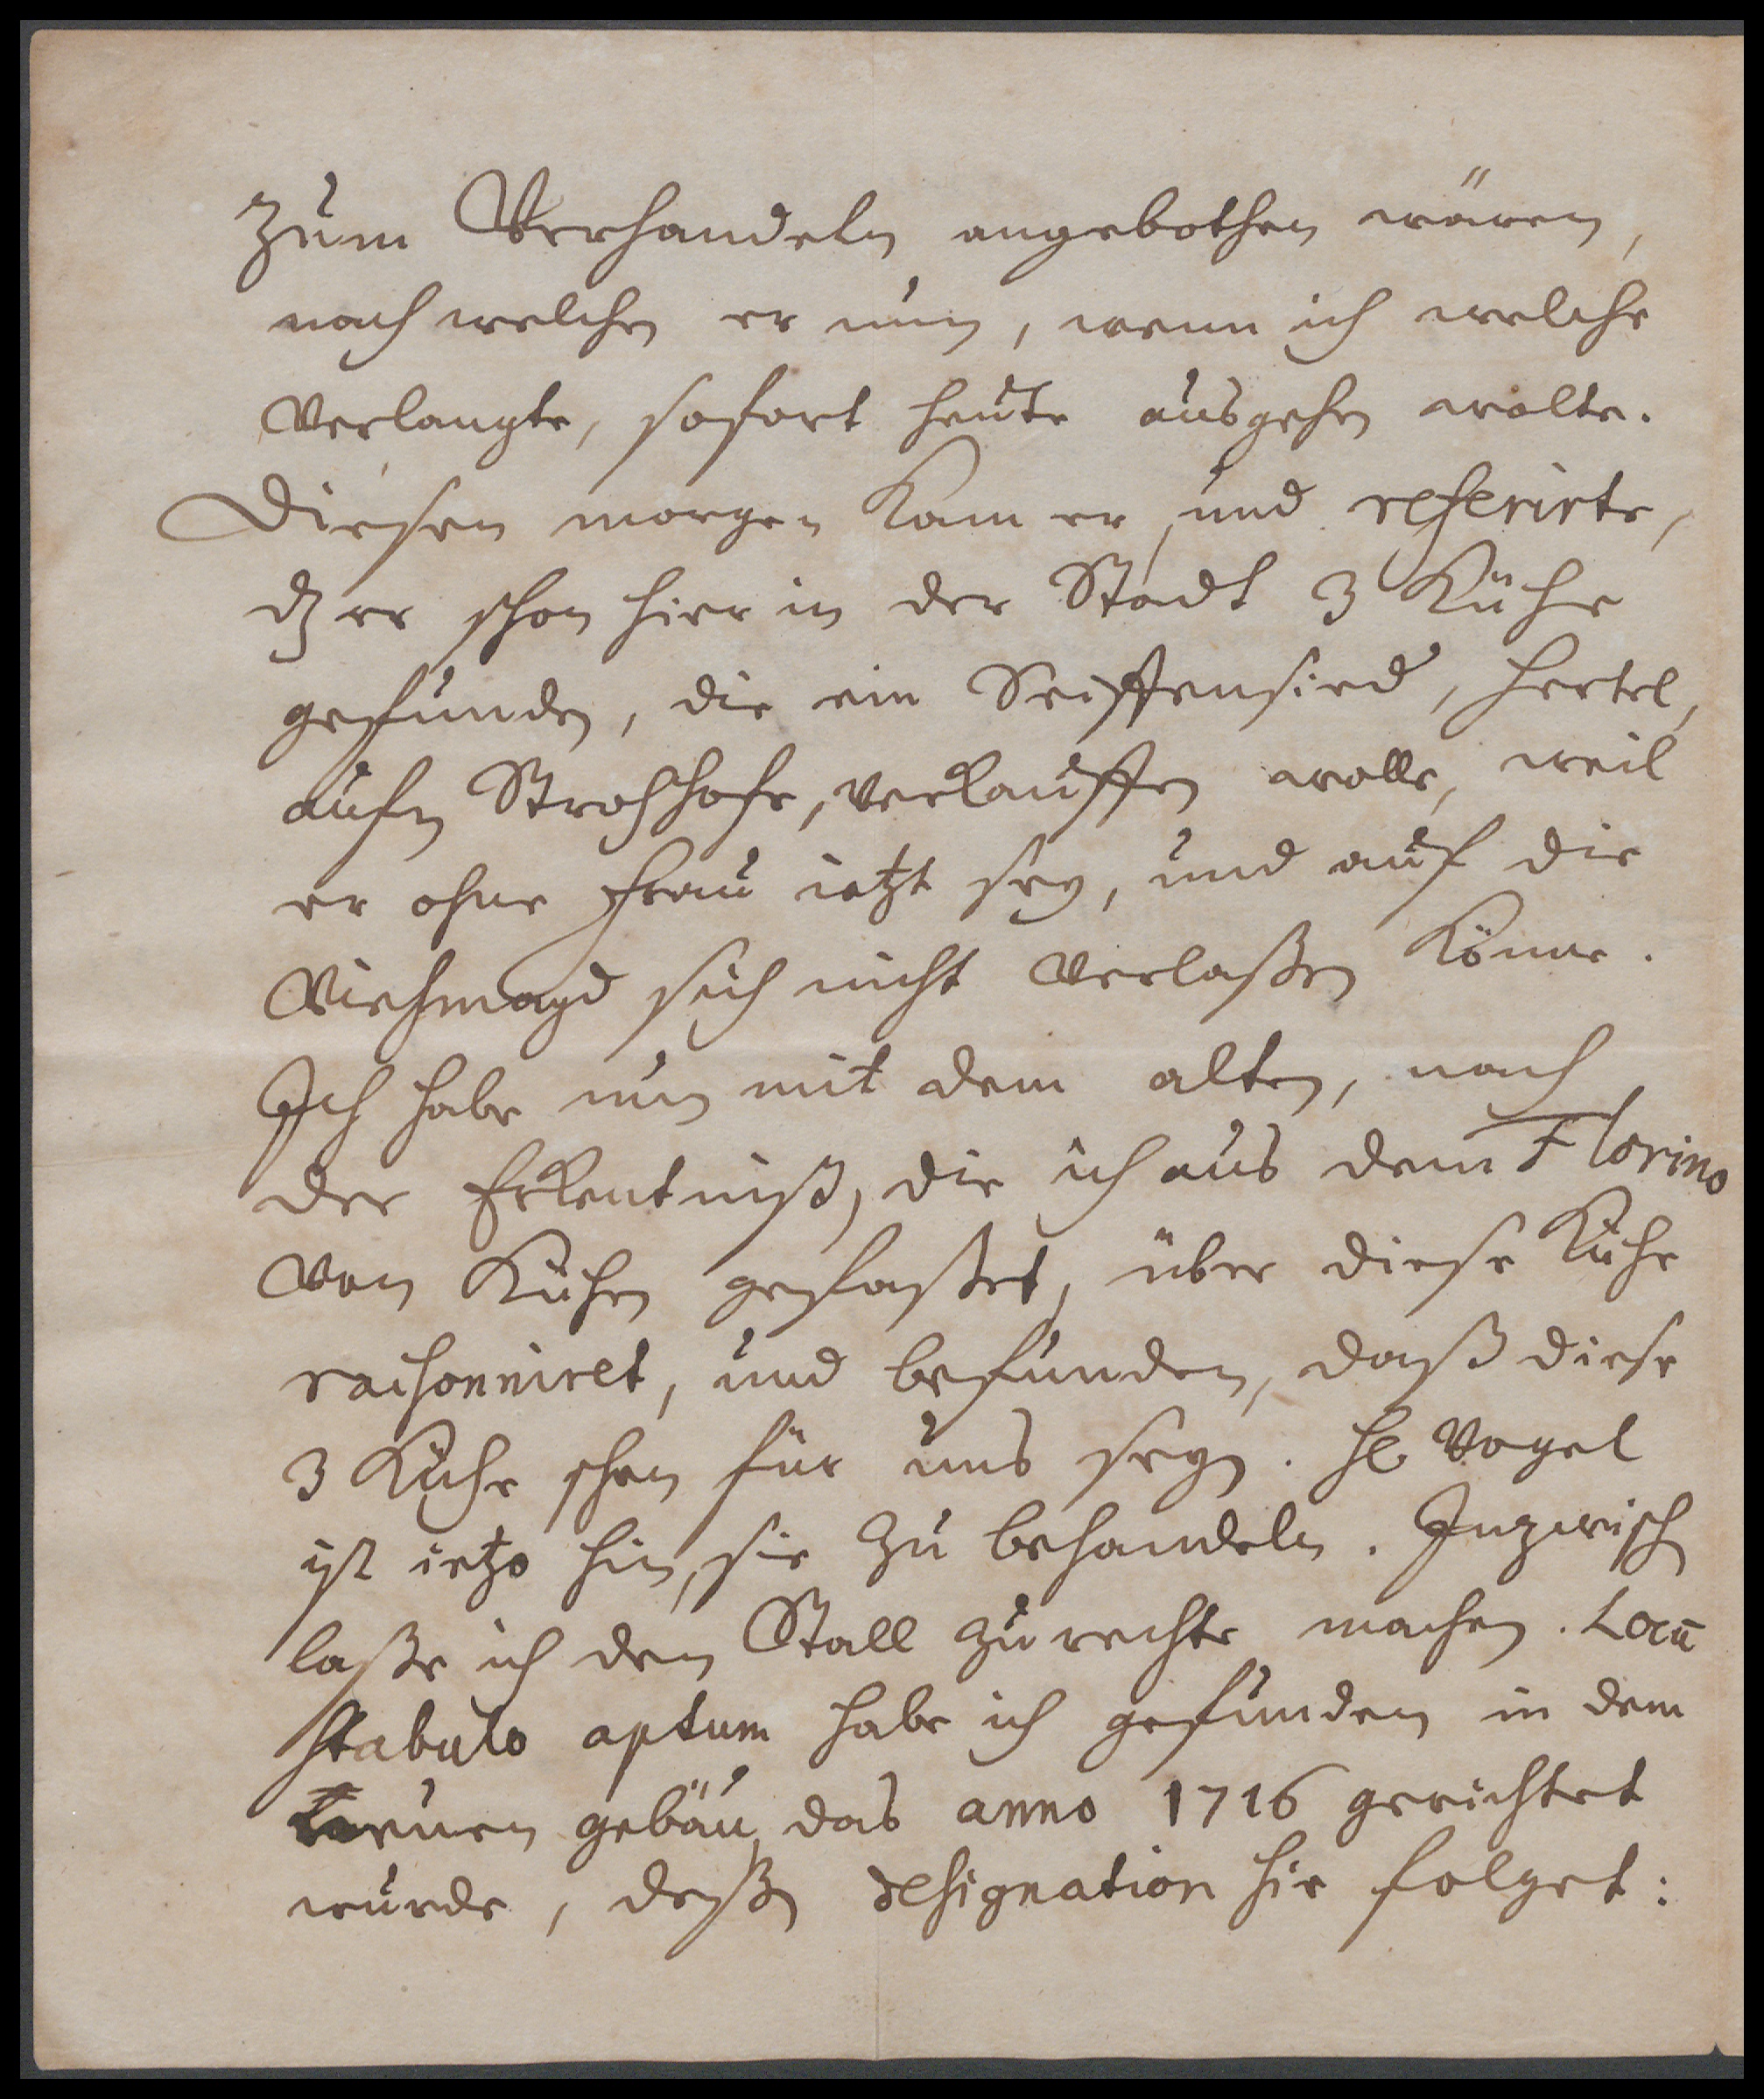 zum Verhandeln angebothen wären,
nach welchen er nun, wenn ich welche
verlangte, sofort heute ausgehen wolte.
Diesen morgen kam er, und referirte,
dz er schon hier in der Stadt 3 Kühe
gefunden, die ein Seiffensied, Hertel,
aufn Strohhofe, verkauffen wolle, weil
er ohne Frau ietzt sey, und auf die
Viehmagd sich nicht verlaßen könne.
Ich habe nun mit dem alten, nach
der Erkentniß, die ich aus dem Florino
von Kühen gefaßet, über diese Kühe
raisonniret, und befunden, daß diese
3 Kühe schon für uns seyn. H Vogel
ist ietzo hin, sie zu behandeln. Inzwisch
laße ich den Stall zu rechte machen. Locū
stabulo aptum habe ich gefunden in dem
neuen gebäu, das anno 1716 gerichtet
wurde, deßen designation hie folget: